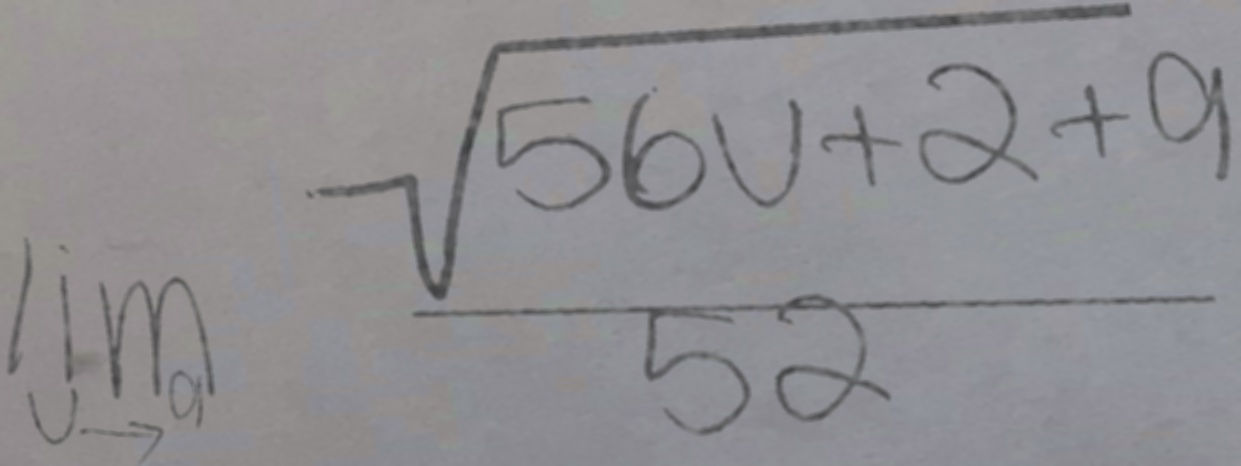 \lim_{v \to 9} \frac{\sqrt{56v+2+9}}{52}